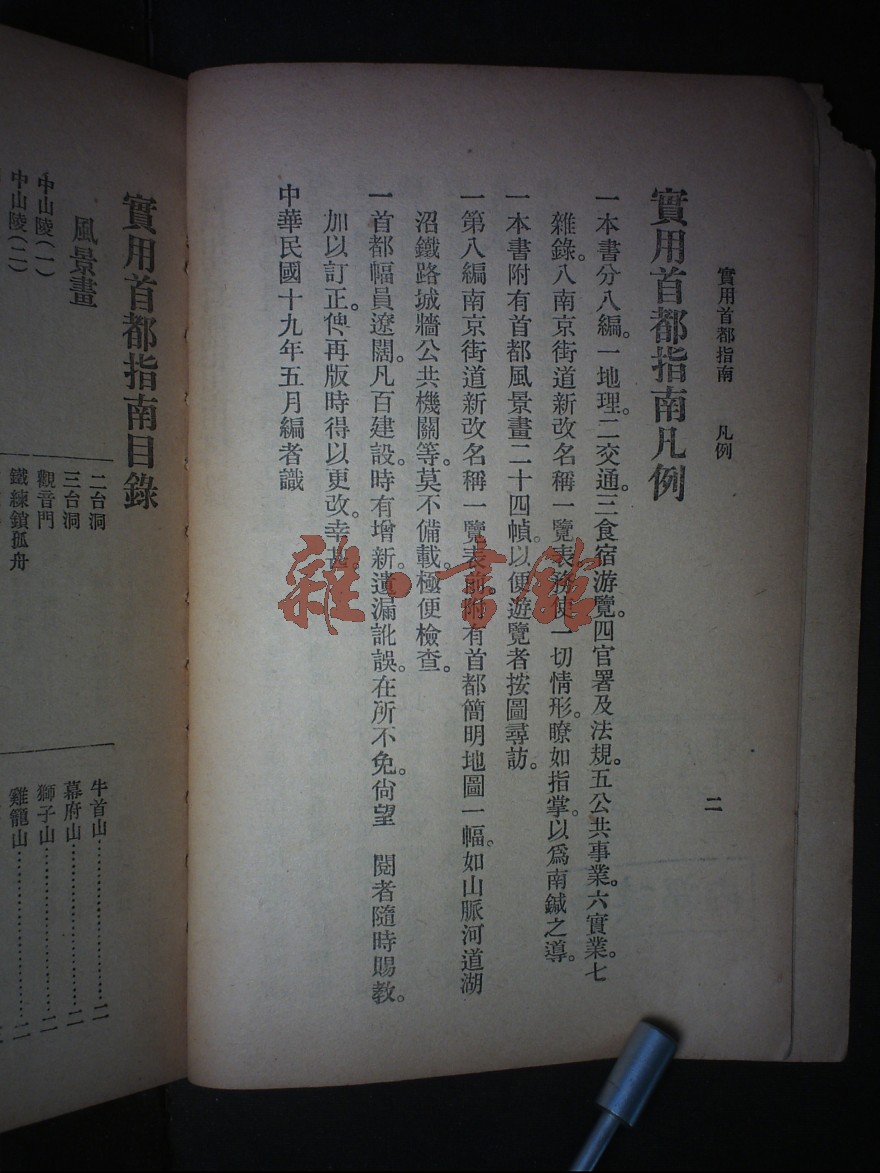 實用首都指南　凡例
二
實用首都指南凡例
一本書分八編。一地理。二交通。三食宿游覽。四官署及法規。五公共事業。六實業。七
雜錄。八南京街道新改名稱一覽表務使一切情形。瞭如指掌。以爲南鍼之導。
一本書附有首都風景畫二十四幀。以便遊覽者按圖尋訪。
一第八編南京街道新改名稱一覽表。前附有首都簡明地圖一幅。如山脈河道湖
沼鐵路城牆公共機關等。莫不備載。極便檢查。
一首都幅員遼闊。凡百建設。時有增新。遺漏訛誤。在所不免。尙望　閱者隨時賜敎。
加以訂正。俾再版時得以更改。幸甚。
中華民國十九年五月編者識
雜·書館
實用首都指南目錄
風景畫
中山陵(一)
中山陵(二)
二台洞
三台洞
觀音門
鐵練鎖孤舟
牛首山…………二
幕府山…………二
獅子山…………二
雞籠山…………二